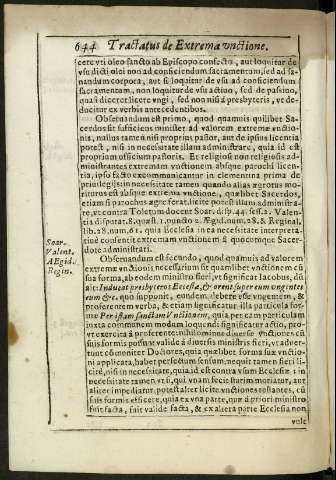 644 Tractatus de Extrema vnctione.
cere vti oleo sancto ab Episcopo confecto, aut loquitur de
vsu dicti olei non ad conficiendum sacramentum, sed ad sa-
nandum corpora, aut si loquitur de vsu ad conficiendum
sacramentum, non loquitur de vsu actiuo, sed de passiuo,
quasi diceret licere vngi, sed non nisi à presbyteris, vt de-
ducitur ex verbis antecedentibus.
Obseruandum est primo, quod quamuis quilibet Sacer-
dos sit sufficiens minister ad valorem extremæ vnctio-
nis, nullus tamen nisi proprius pastor, aut de ipsius licentia
potest, nisi in necessitate illam administrare, quia id est
proprium officium pastoris. Et religiosi non religiosis ad-
ministrantes extremam vnctionem absque parochi licen-
tia, ipso facto excommunicantur in clementina prima de
priuilegijs: in necessitate tamen quando alias ægrotus mo-
riturus est absque extrema vnctione, quilibet Sacerdos,
etiam si parochus ægrè ferat, licitè potest illam administra-
re, vt contra Toletum docent Soar. disp. 44. sess. 2. Valen-
tia disputat. 8. quæst. 1. puncto 2. Ægid. num. 28. & Reginal.
lib. 28. num. 61. quia Ecclesia in ea necessitate interpreta-
tiuè consentit extremam vnctionem à quocumque Sacer-
dote administrari.
Soar.
Valent.
AEgid.
Regin.
Obseruandum est secundo, quod quamuis ad valorem
extremæ vnctionis necessarium sit quamlibet vnctionem cũ
sua forma, ab eodem ministro fieri, vt significat Iacobus, dũ
ait: Inducat presbyteros Ecclesiæ, & orent super eum vngentes
eum &c. quo supponit, eundem debere esse vngentem, &
proferentem verba, & etiam significatur illa particula for-
mæ Per istam sanctam Vnctionem, quia per eam particulam
iuxta communem modum loquendi significatur actio, pro-
vt exercita à proferente: nihilominus diuersæ vnctiones cũ
suis formis possunt valide à diuersis ministris fieri, vt aduer-
tunt cõmuniter Doctores, quia quælibet forma suæ vnctio-
ni applicata, habet perfectum sensum, nequit tamen fieri li-
citè, nisi in necessitate, quia id est contra vsum Ecclesiæ: in
necessitate tamen, vt si, qui vnam fecit statim moriatur, aut
aliter impediatur, potest alter licitè vnctiones restantes, cũ
suis formis efficere, quia ex vna parte, quæ à priori ministro
fuit facta, fuit valide facta, & ex altera parte Ecclesia non
vult